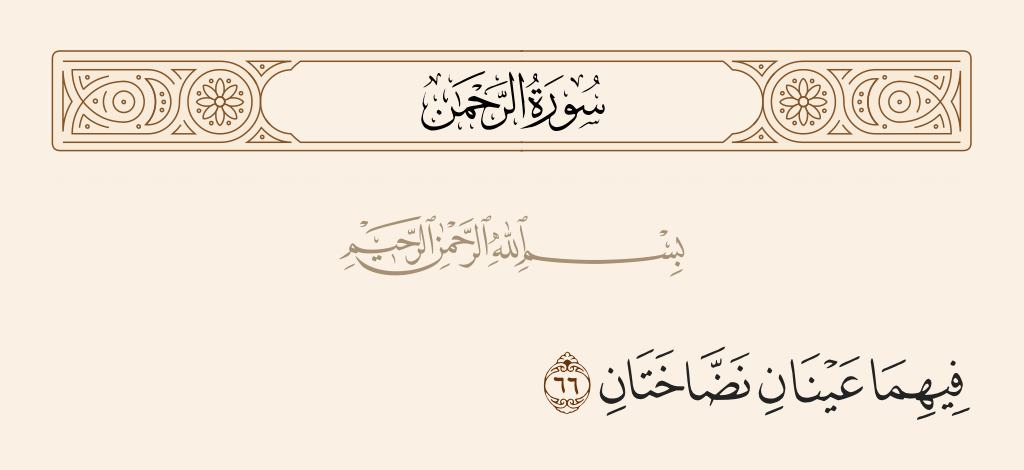 سُورَةُ الرَّحْمَٰن
بِسْمِ ٱللَّهِ ٱلرَّحْمَٰنِ ٱلرَّحِيمِ
فِيهِمَا عَيْنَانِ نَضَّاخَتَانِ ٦٦